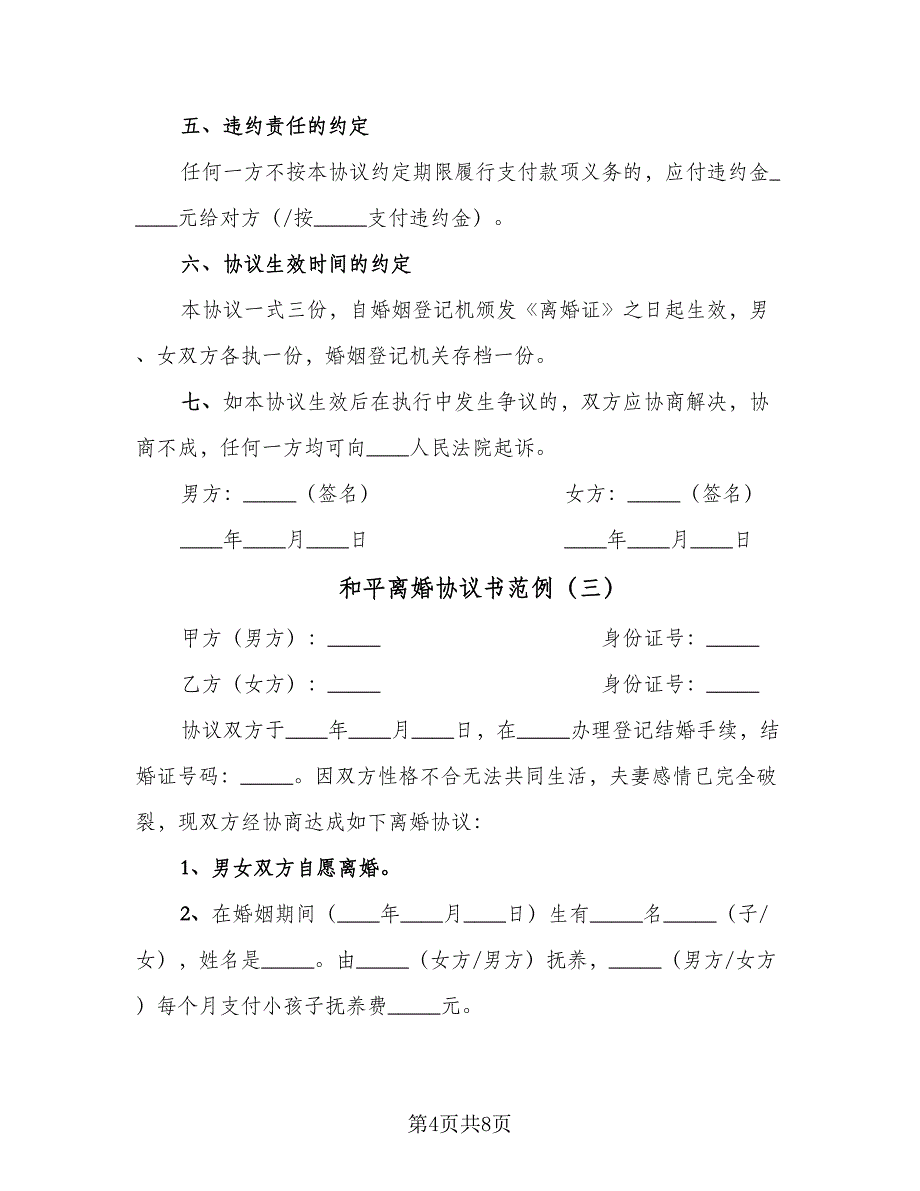 五、违约责任的约定
任何一方不按本协议约定期限履行支付款项义务的，应付违约金_
____元给对方（/按_____支付违约金）。
六、协议生效时间的约定
本协议一式三份，自婚姻登记机颁发《离婚证》之日起生效，男
、女双方各执一份，婚姻登记机关存档一份。
七、如本协议生效后在执行中发生争议的，双方应协商解决，协
商不成，任何一方均可向____人民法院起诉。
男方：_____（签名） 女方：_____（签名）
____年____月____日 ____年____月____日
和平离婚协议书范例（三）
甲方（男方）：_____ 身份证号：_____
乙方（女方）：_____ 身份证号：_____
协议双方于____年____月____日，在_____办理登记结婚手续，结
婚证号码：_____。因双方性格不合无法共同生活，夫妻感情已完全破
裂，现双方经协商达成如下离婚协议：
1、男女双方自愿离婚。
2、在婚姻期间（____年____月____日）生有_____名_____（子/
女），姓名是_____。由_____（女方/男方）抚养，_____（男方/女方
）每个月支付小孩子抚养费_____元。
第4页共8页